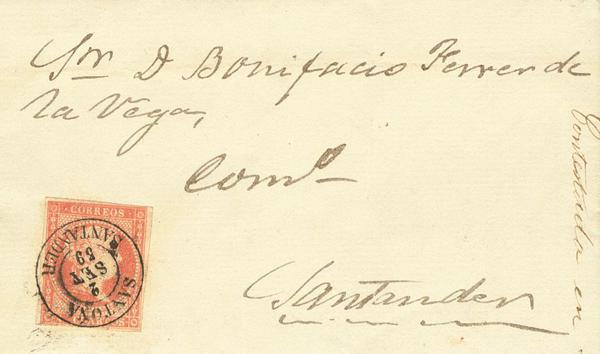 Sr. D Bonifacio Ferrer de
la Vega,
Com.o
Santander
Contestada en
CORREOS
SANTOÑA
SANTANDER
2
SET
59